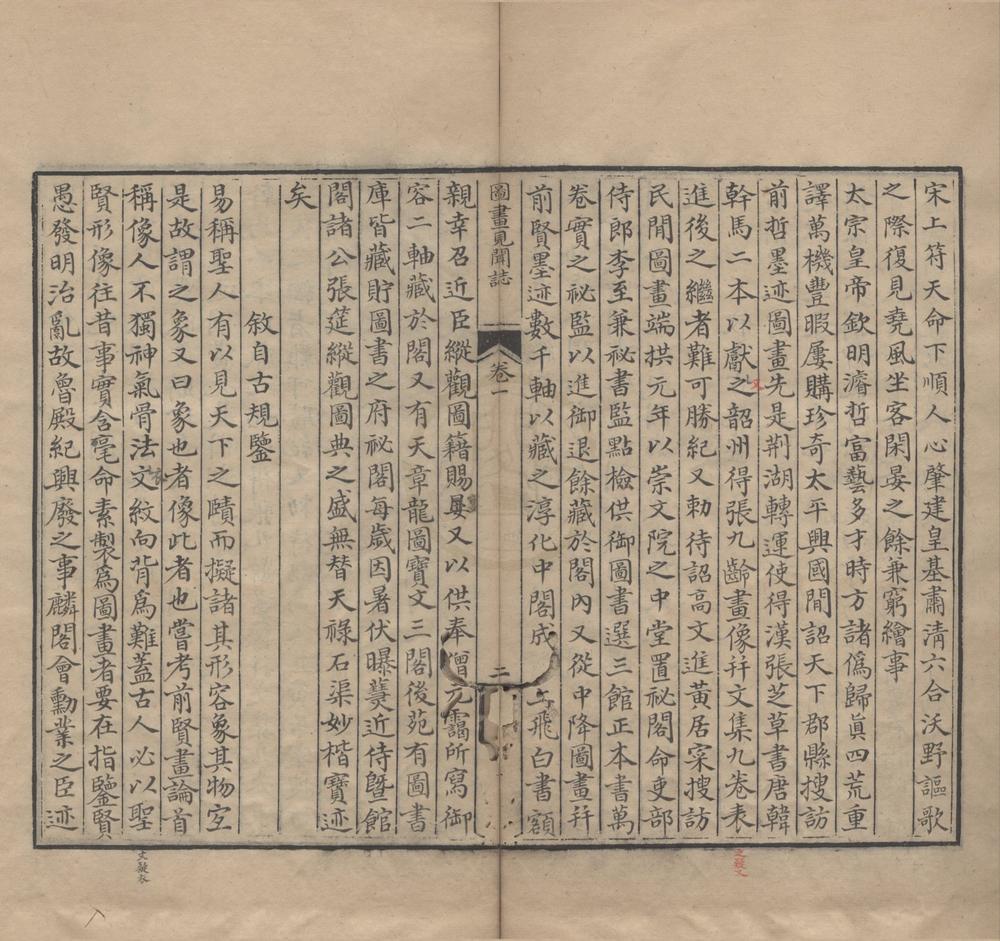 宋上符天命下順人心肇建皇基肅清六合沃野謳歌
之際復見堯風坐客閑晏之餘兼窮繪事
太宗皇帝欽明濬哲富藝多才時方諸僞歸眞四荒重
譯萬機豐暇屢購珍奇太平興國閒詔天下郡縣搜訪
前哲墨迹圖畫先是荆湖轉運使得漢張芝草書唐韓
幹馬二本以獻之韶州得張九齡畫像幷文集九卷表
又
進後之繼者難可勝紀又勅待詔高文進黃居寀搜訪
民閒圖畫端拱元年以崇文院之中堂置祕閣命吏部
侍郎李至兼祕書監點檢供御圖書選三館正本書萬
卷實之祕監以進御退餘藏於閣內又從中降圖畫幷
前賢墨迹數千軸以藏之淳化中閣成上飛白書額
圖畫見聞誌 卷一 二
親幸召近臣縱觀圖籍賜晏又以供奉僧元靄所寫御
容二軸藏於閣又有天章龍圖寶文三閣後苑有圖書
庫皆藏貯圖書之府祕閣每歲因暑伏曝㒑近侍曁館
閣諸公張筵縱觀圖典之盛無替天祿石渠妙楷寶迹
矣
敘自古規鑒
易稱聖人有以見天下之賾而擬諸其形容象其物宜
是故謂之象又曰象也者像此者也嘗考前賢畫論首
稱像人不獨神氣骨法文紋向背爲難蓋古人必以聖
衣
賢形像往昔事實含毫命素製爲圖畫者要在指鑒賢
愚發明治亂故魯殿紀興廢之事麟閣會勳業之臣迹
之疑又
文疑衣